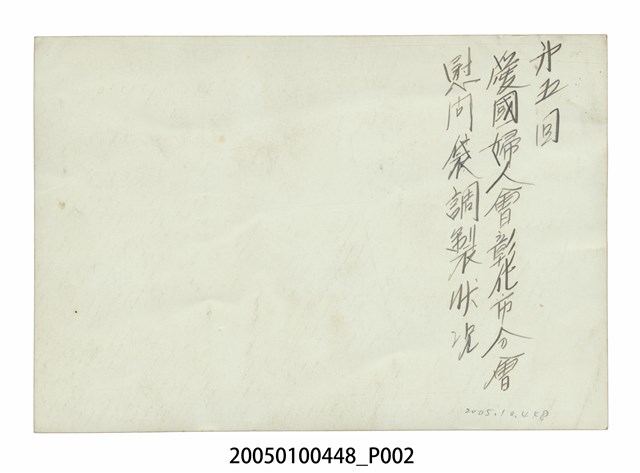 第五回
愛國婦人會彰化市分會
慰问袋調製狀况
2005.10.448
20050100448_P002